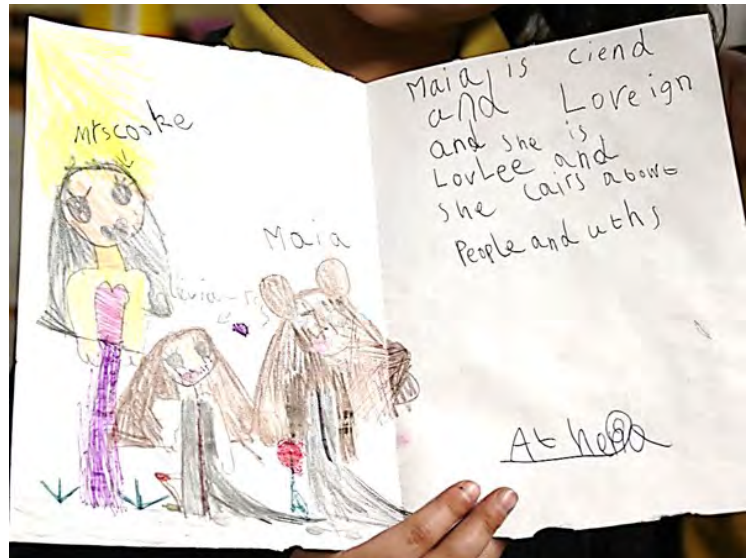 mrscooke
Maia
Maia is ciend
and Loveign
and she is
LovLee and
she cairs abowt
People and uths
Athena